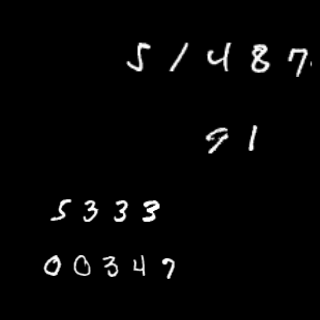 51487
91
5333
00347